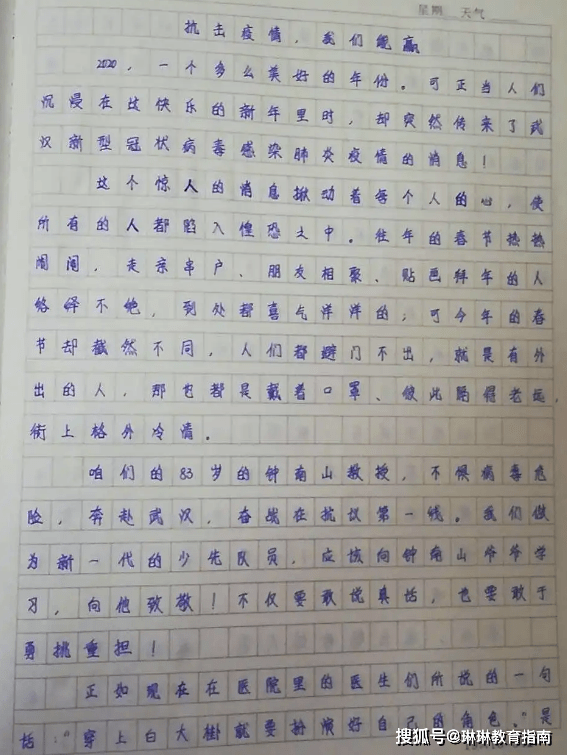 星期 天气
抗击疫情，我们能赢
2020，一个多么美好的年份。可正当人们
沉浸在这快乐的新年里时，却突然传来了武
汉新型冠状病毒感染肺炎疫情的消息！
这个惊人的消息揪动着每个人的心，使
所有的人都陷入惶恐之中。往年的春节热热
闹闹，走亲串户、朋友相聚、贴画拜年的人
络绎不绝，到处都喜气洋洋的；可今年的春
节却截然不同，人们都避门不出，就是有外
出的人，那也都是戴着口罩、彼此隔得老远，
街上格外冷清。
咱们的83岁的钟南山教授，不惧病毒危
险，奔赴武汉，奋战在抗议第一线。我们做
为新一代的少先队员，应该向钟南山爷爷学
习，向他致敬！不仅要敢说真话，也要敢于
勇挑重担！
正如现在在医院里的医生们所说的一句
话：“穿上白大褂就要扮演好自己的角色。”是
搜狐号@琳琳教育指南